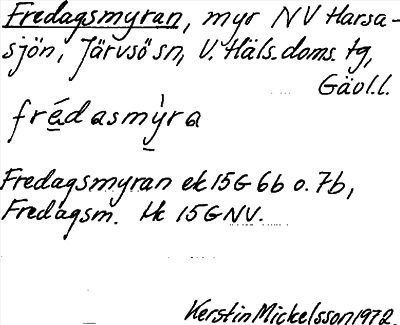 Fredagsmyran, myr NV Harsa-
sjön, Järvsö sn, V. Häls. doms. tg,
Gävl.l.
frédasmỳra
Fredagsmyran ek 15G 6b o. 7b,
Fredagsm. Hk 15G NV.
Kerstin Mickelsson 1972.